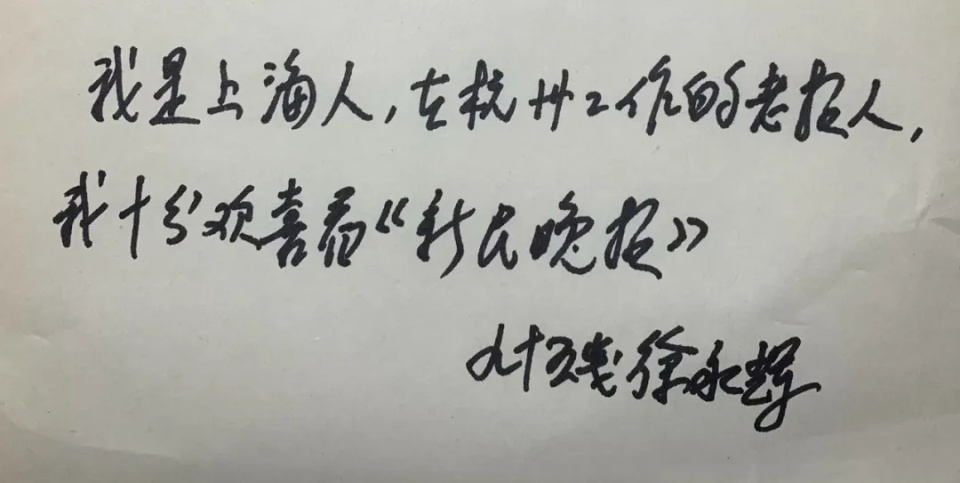 我是上海人,在杭州工作的老报人,
我十分欢喜看《新民晚报》
九十五岁徐永辉